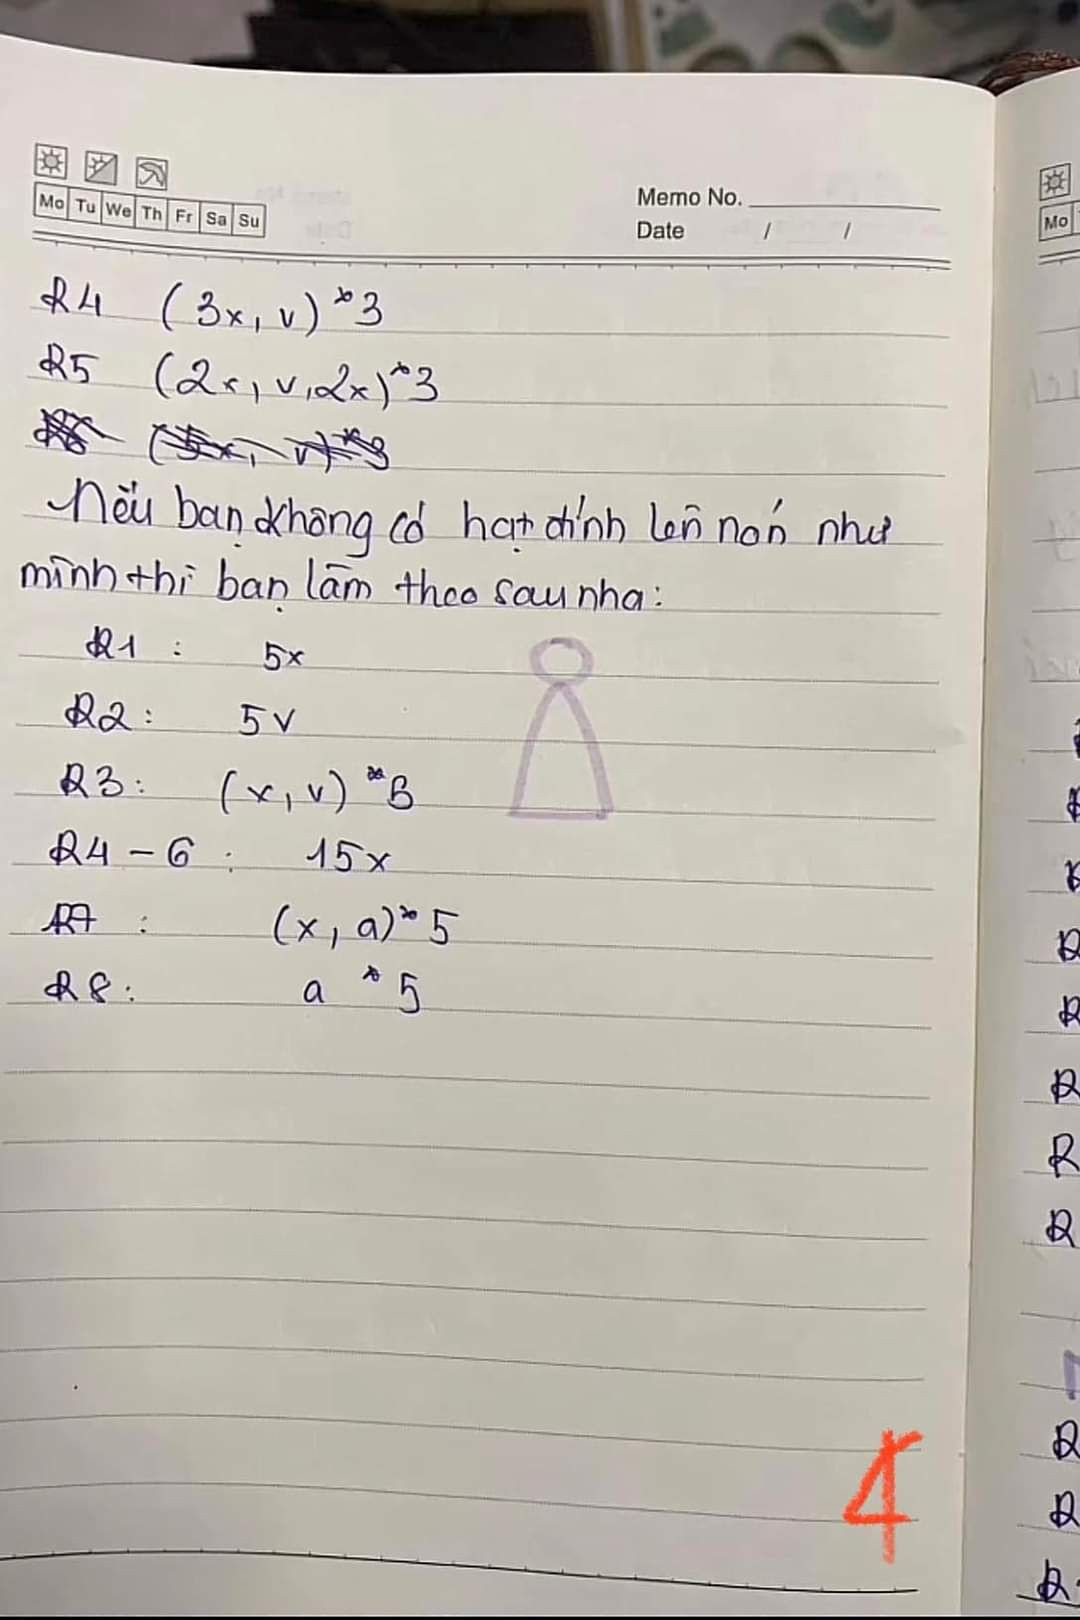 Mo Tu We Th Fr Sa Su
Memo No.
Date / /
R4 (3x, v) * 3
R5 (2x, v, 2x) * 3
Nếu bạn không có hạt đính lên nón như
mình thì bạn làm theo sau nha:
R1 : 5x
R2 : 5v
R3 : (x, v) * 5
R4 - 6 : 15x
R7 : (x, a) * 5
R8 : a * 5
4
Mo
R
R
R
R
R
R
R
R